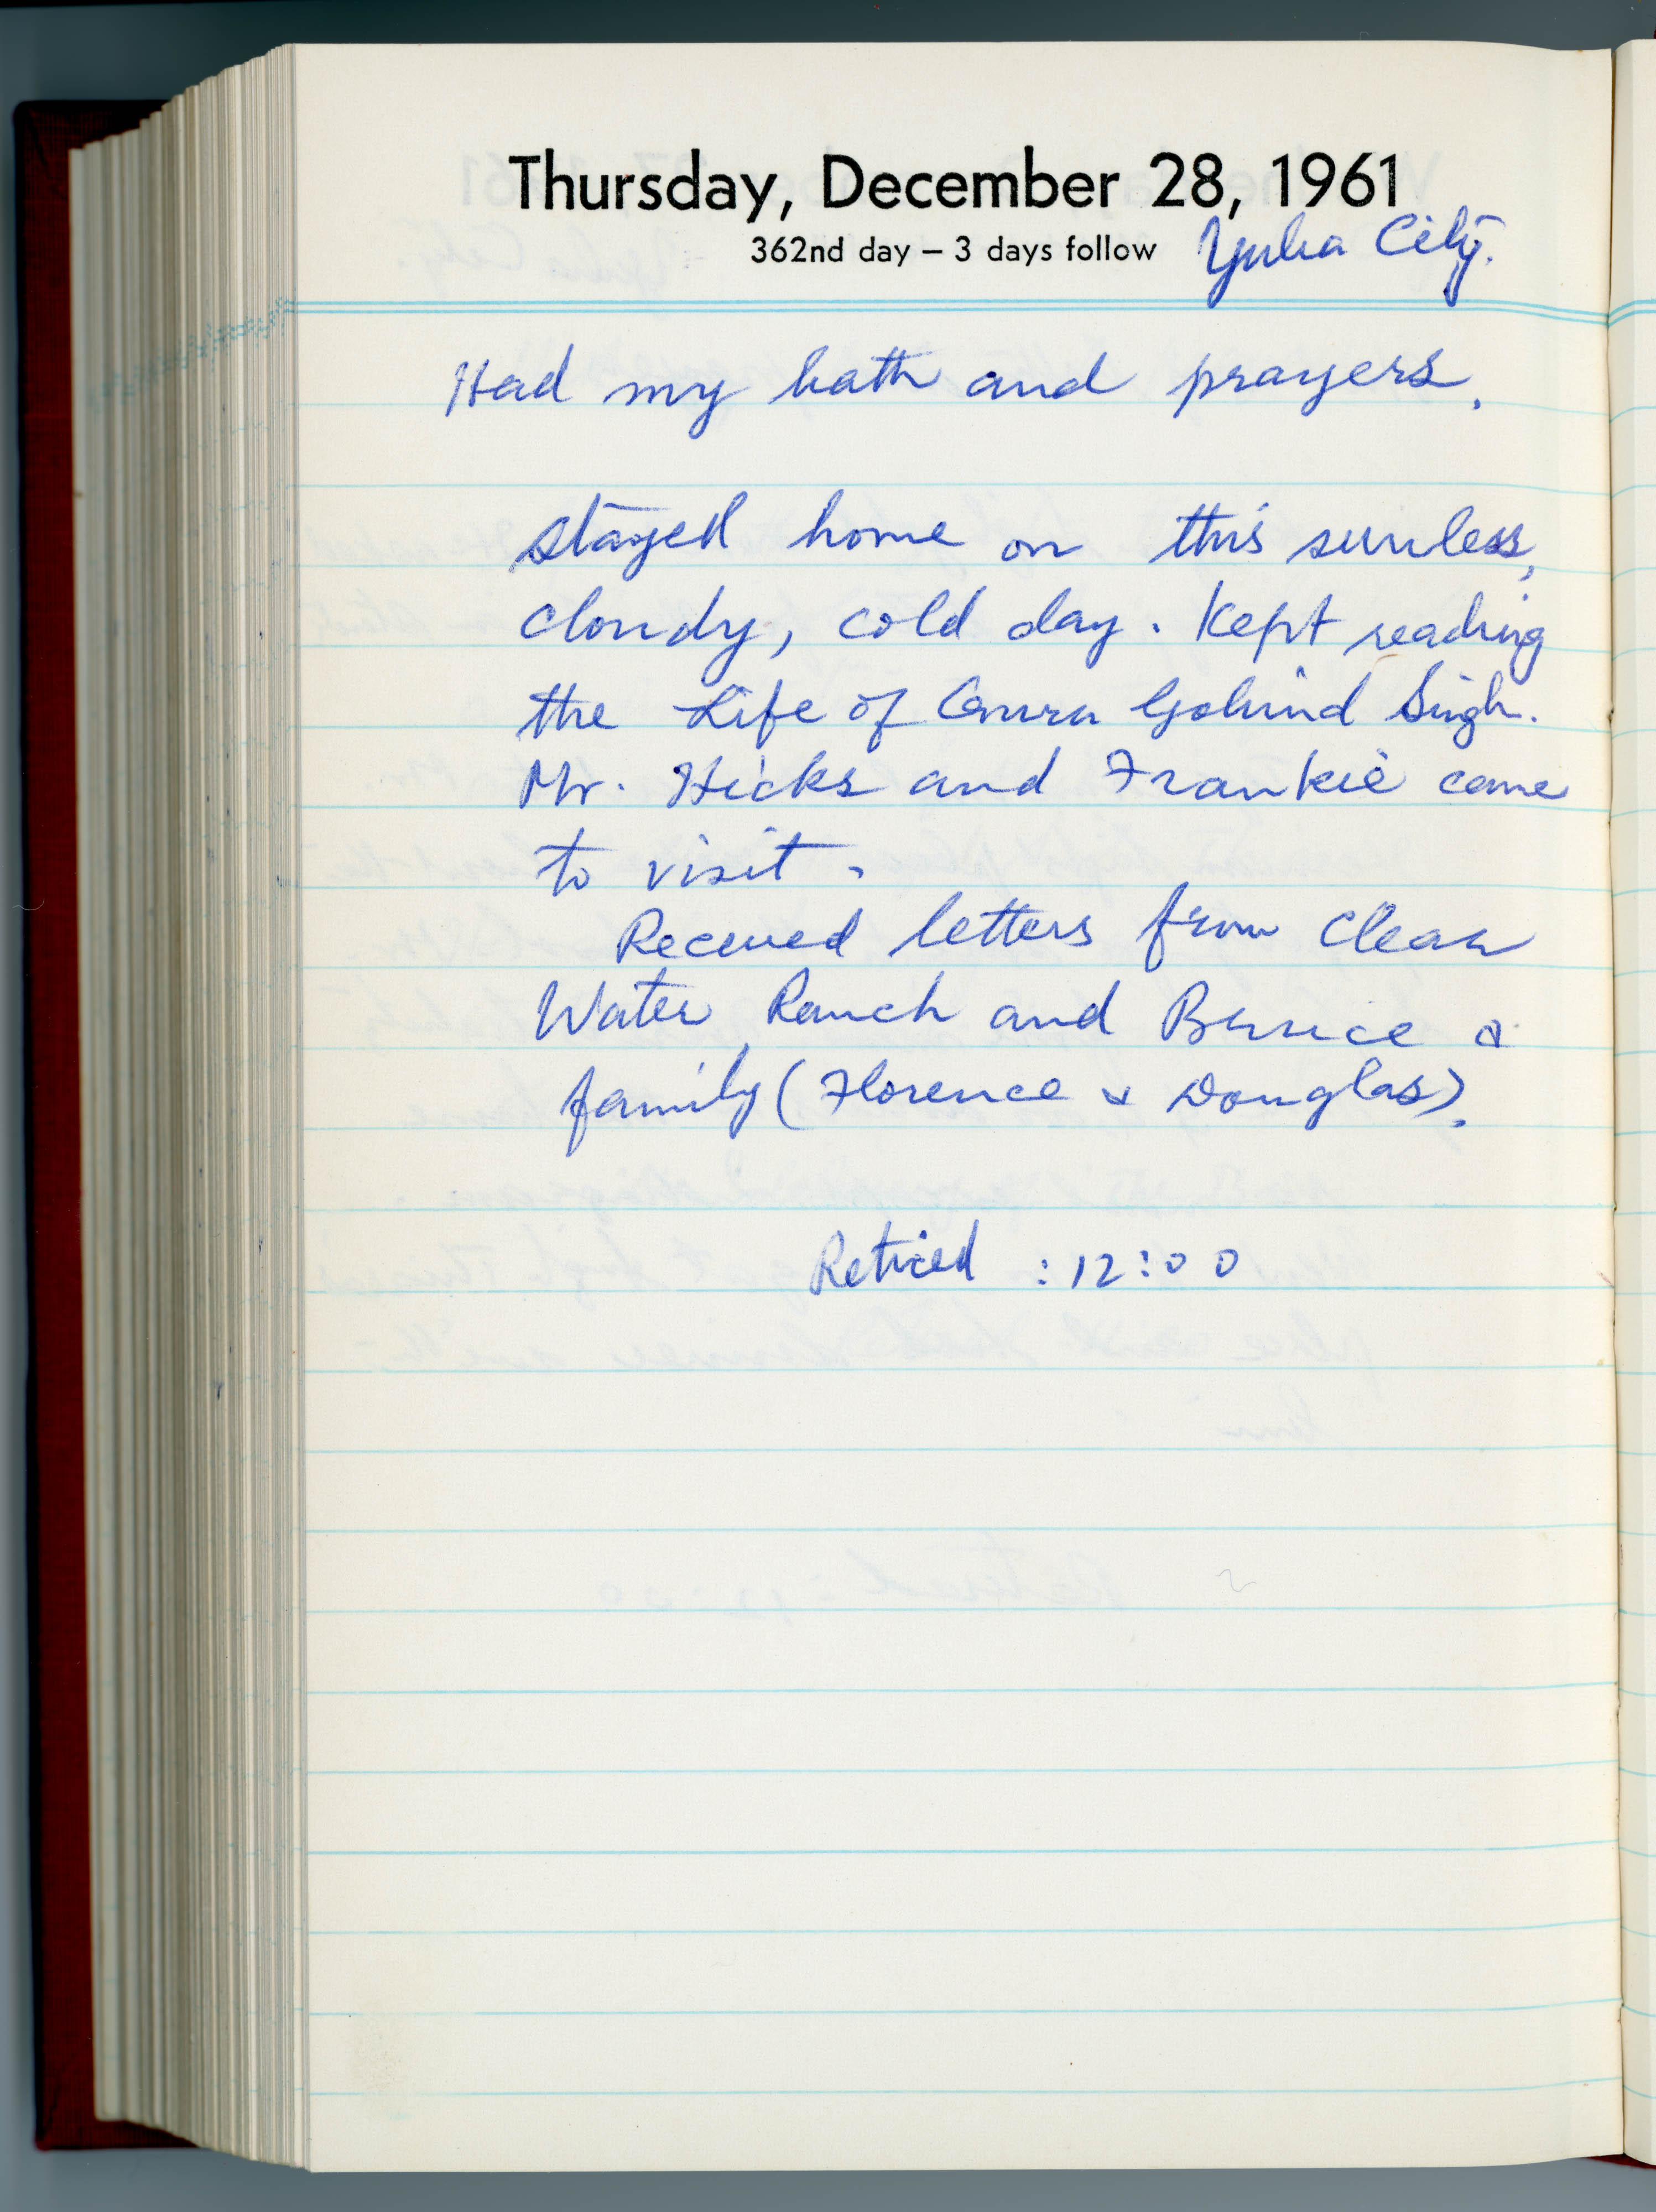 Thursday, December 28, 1961
362nd day – 3 days follow Yuba City.
Had my bath and prayers.
stayed home on this sunless,
cloudy, cold day. Kept reading
the Life of Guru Gobind Singh.
Mr. Hicks and Frankie came
to visit.
Received letters from Clear
Water Ranch and Bernice &
family (Florence & Douglas).
Retired : 12:00